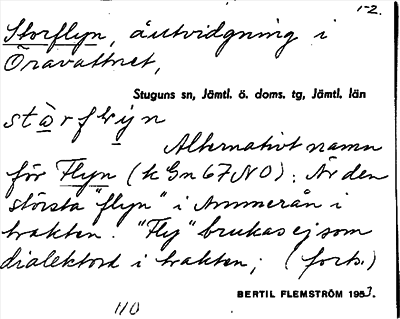 1-2.
Storflyn, åutvidgning i
Öravattnet,
Stuguns sn, Jämtl. ö. doms. tg, Jämtl. län
Alternativt namn
för Flyn (k Gn 67 NO). Är den
största "flyn" i Ammerån i
trakten. "Fly" brukas ej som
dialektord i trakten; (forts.)
BERTIL FLEMSTRÖM 1953.
110